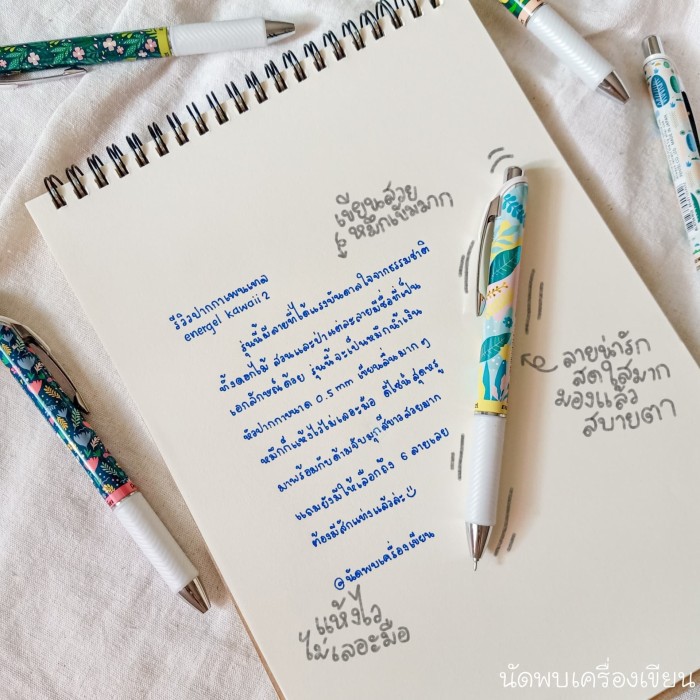 เขียนสวย
หมึกเข้มมาก
รีวิวปากกาเพนเทล
energel kawaii 2
รุ่นนี้มีลายที่ได้แรงบันดาลใจจากธรรมชาติ
ทั้งดอกไม้ สวนและป่าแต่ละลายมีชื่อที่เป็น
เอกลักษณ์ด้วย รุ่นนี้จะเป็นหมึกน้ำเงิน
หัวปากกาขนาด 0.5 mm เขียนลื่นมากๆ
หมึกก็แห้งไวไม่เลอะมือ ดีไซน์สุดหรู
มาพร้อมกับด้ามจับมุกสีขาวสวยมาก
แถมยังมีให้เลือกถึง 6 ลายเลย
ต้องมีสักแท่งแล้วล่ะ
@นัดพบเครื่องเขียน
ลายน่ารัก
สดใสมาก
มองแล้ว
สบายตา
แห้งไว
ไม่เลอะมือ
นัดพบเครื่องเขียน